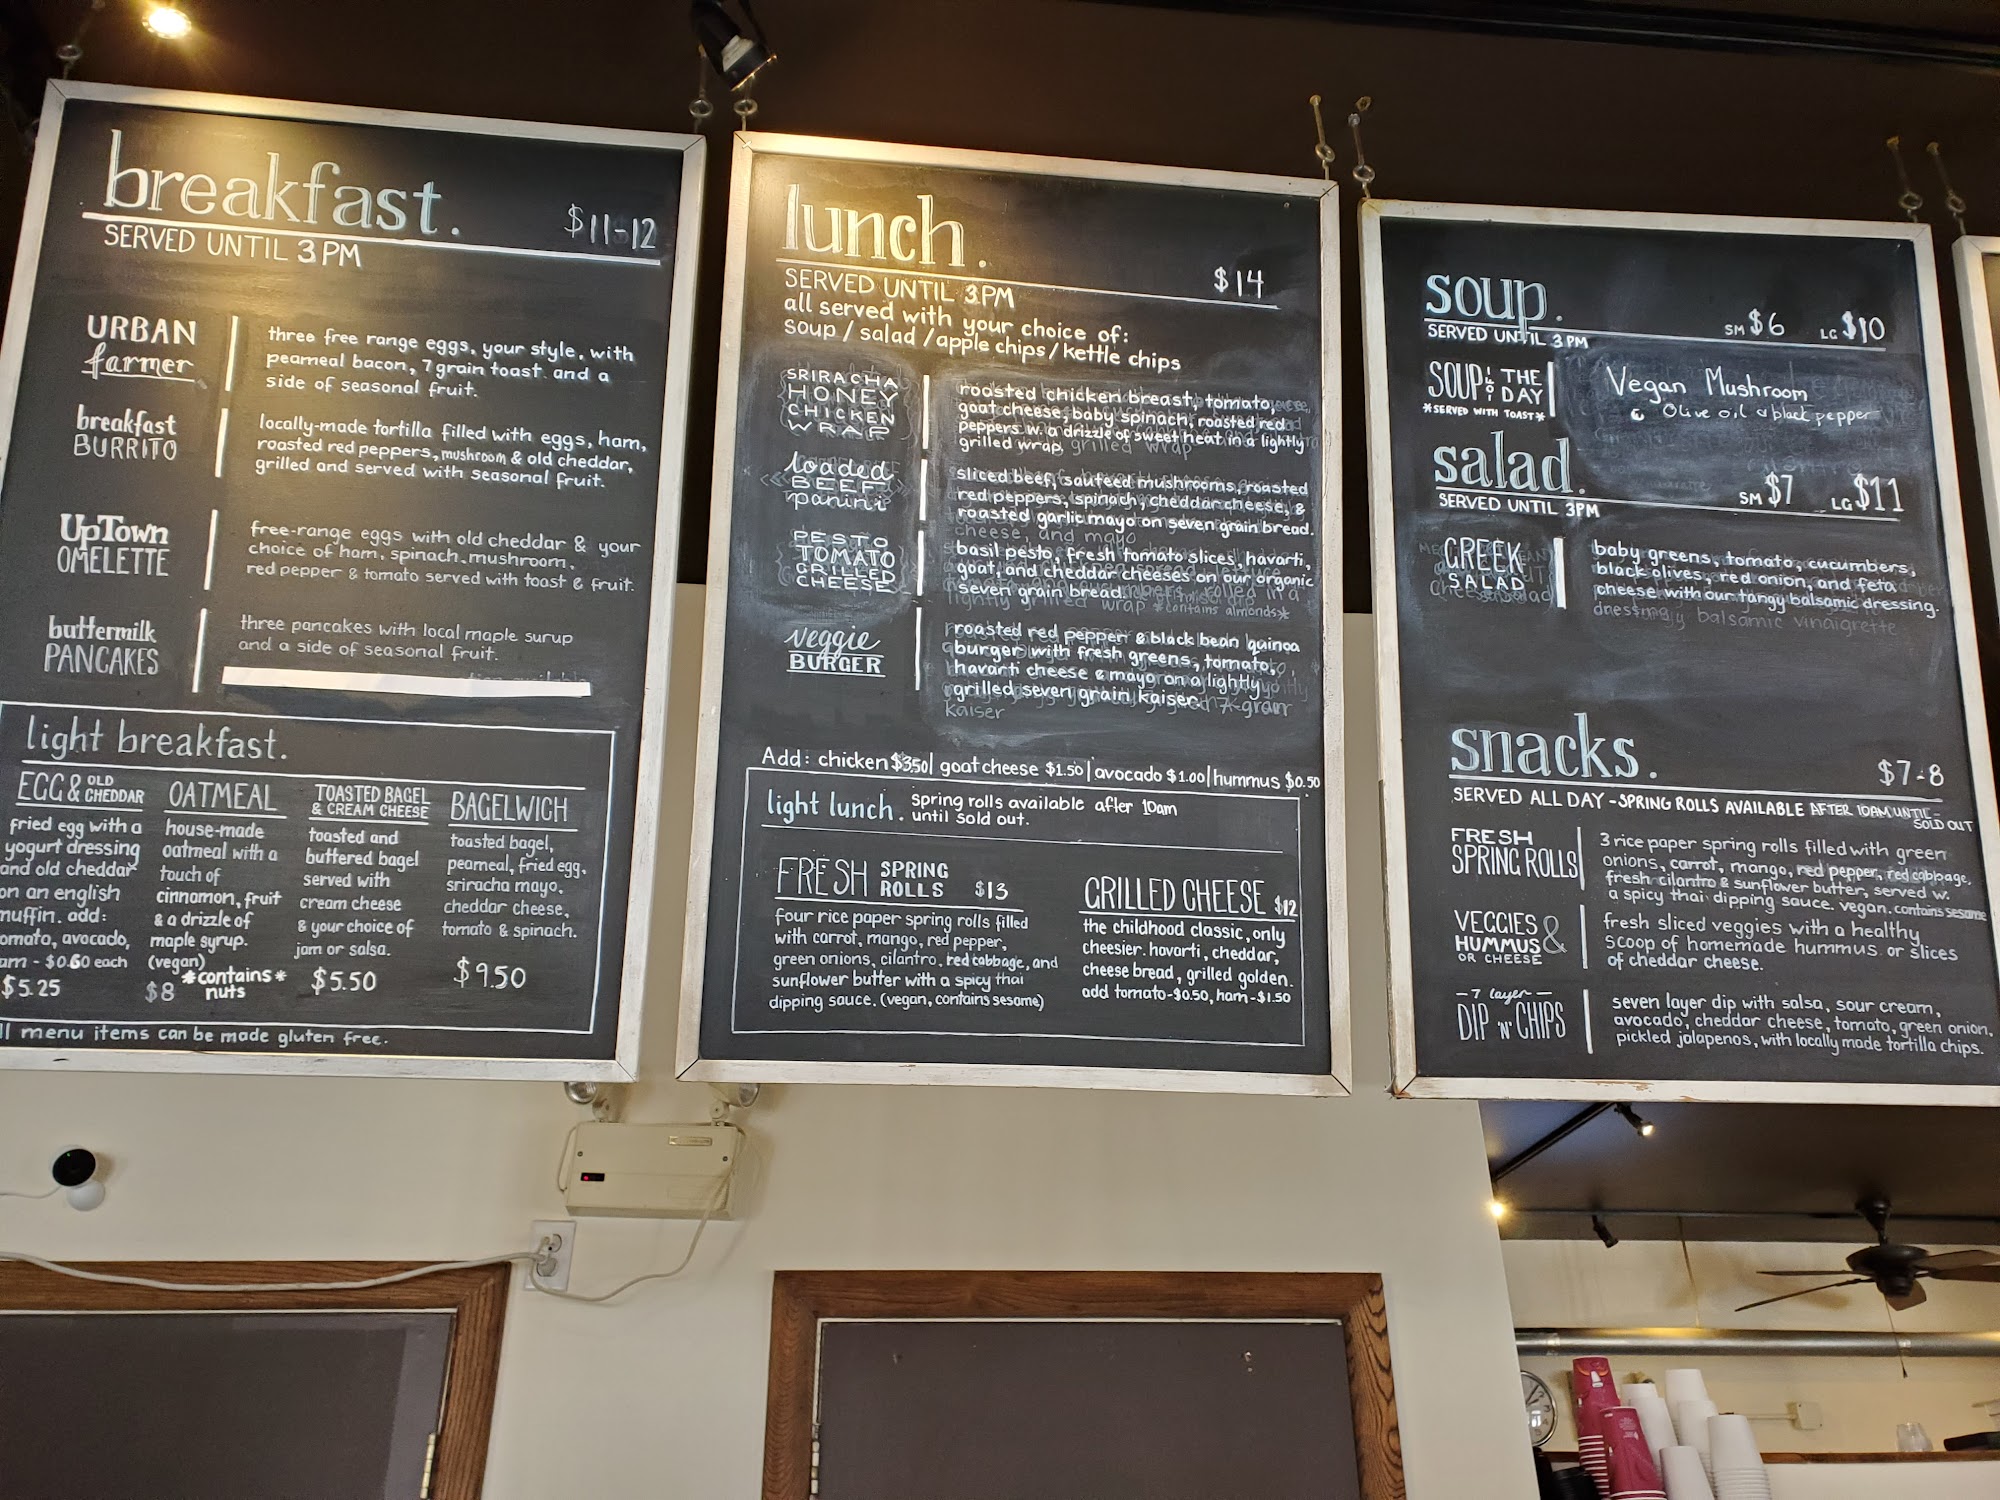 breakfast.
$11-12
SERVED UNTIL 3PM
URBAN
farmer
three free range eggs, your style, with
peameal bacon, 7 grain toast and a
side of seasonal fruit.
breakfast
BURRITO
locally-made tortilla filled with eggs, ham,
roasted red peppers, mushroom & old cheddar,
grilled and served with seasonal fruit.
UpTown
OMELETTE
free-range eggs with old cheddar & your
choice of ham, spinach, mushroom,
red pepper & tomato served with toast & fruit.
buttermilk
PANCAKES
three pancakes with local maple surup
and a side of seasonal fruit.
light breakfast.
EGG & OLD CHEDDAR
fried egg with a
yogurt dressing
and old cheddar
on an english
muffin. add:
omato, avocado,
am - $0.60 each
$5.25
OATMEAL
house-made
oatmeal with a
touch of
cinnamon, fruit
& a drizzle of
maple syrup.
(vegan)
*contains*
nuts
$8
TOASTED BAGEL
& CREAM CHEESE
toasted and
buttered bagel
served with
cream cheese
& your choice of
jam or salsa.
$5.50
BAGELWICH
toasted bagel,
peameal, fried egg,
sriracha mayo,
cheddar cheese,
tomato & spinach.
$9.50
ll menu items can be made gluten free.
lunch.
$14
SERVED UNTIL 3PM
all served with your choice of:
soup / salad / apple chips / kettle chips
SRIRACHA
HONEY
CHICKEN
WRAP
roasted chicken breast, tomato,
goat cheese, baby spinach, roasted red
peppers w. a drizzle of sweet heat in a lightly
grilled wrap, grilled wrap
loaded
BEEF
panini
sliced beef, sauteed mushrooms, roasted
red peppers, spinach, cheddar cheese, &
roasted garlic mayo on seven grain bread.
cheese, and mayo
PESTO
TOMATO
GRILLED
CHEESE
basil pesto, fresh tomato slices, havarti,
goat, and cheddar cheeses on our organic
seven grain bread.
lightly grilled wrap *contains almonds*
veggie
BURGER
roasted red pepper & black bean quinoa
burger with fresh greens, tomato,
havarti cheese & mayo on a lightly
grilled seven grain kaiser. 7-grain
kaiser
Add: chicken $3.50 | goat cheese $1.50 | avocado $1.00 | hummus $0.50
light lunch. spring rolls available after 10am
until sold out.
FRESH SPRING ROLLS $13
four rice paper spring rolls filled
with carrot, mango, red pepper,
green onions, cilantro, red cabbage, and
sunflower butter with a spicy thai
dipping sauce. (vegan, contains sesame)
GRILLED CHEESE $12
the childhood classic, only
cheesier. havarti, cheddar,
cheese bread, grilled golden.
add tomato-$0.50, ham-$1.50
soup.
SM $6 LG $10
SERVED UNTIL 3PM
SOUP OF THE DAY
*SERVED WITH TOAST*
Vegan Mushroom
c Olive oil & black pepper
salad.
SM $7 LG $11
SERVED UNTIL 3PM
GREEK
SALAD
baby greens, tomato, cucumbers,
black olives, red onion, and feta
cheese with our tangy balsamic dressing.
balsamic vinaigrette
snacks.
$7-8
SERVED ALL DAY - SPRING ROLLS AVAILABLE AFTER 10AM UNTIL
SOLD OUT
FRESH
SPRING ROLLS
3 rice paper spring rolls filled with green
onions, carrot, mango, red pepper, red cabbage,
fresh cilantro & sunflower butter, served w.
a spicy thai dipping sauce. vegan. contains sesame
VEGGIES &
HUMMUS
OR CHEESE
fresh sliced veggies with a healthy
scoop of homemade hummus or slices
of cheddar cheese.
-7 layer-
DIP 'N' CHIPS
seven layer dip with salsa, sour cream,
avocado, cheddar cheese, tomato, green onion,
pickled jalapenos, with locally made tortilla chips.